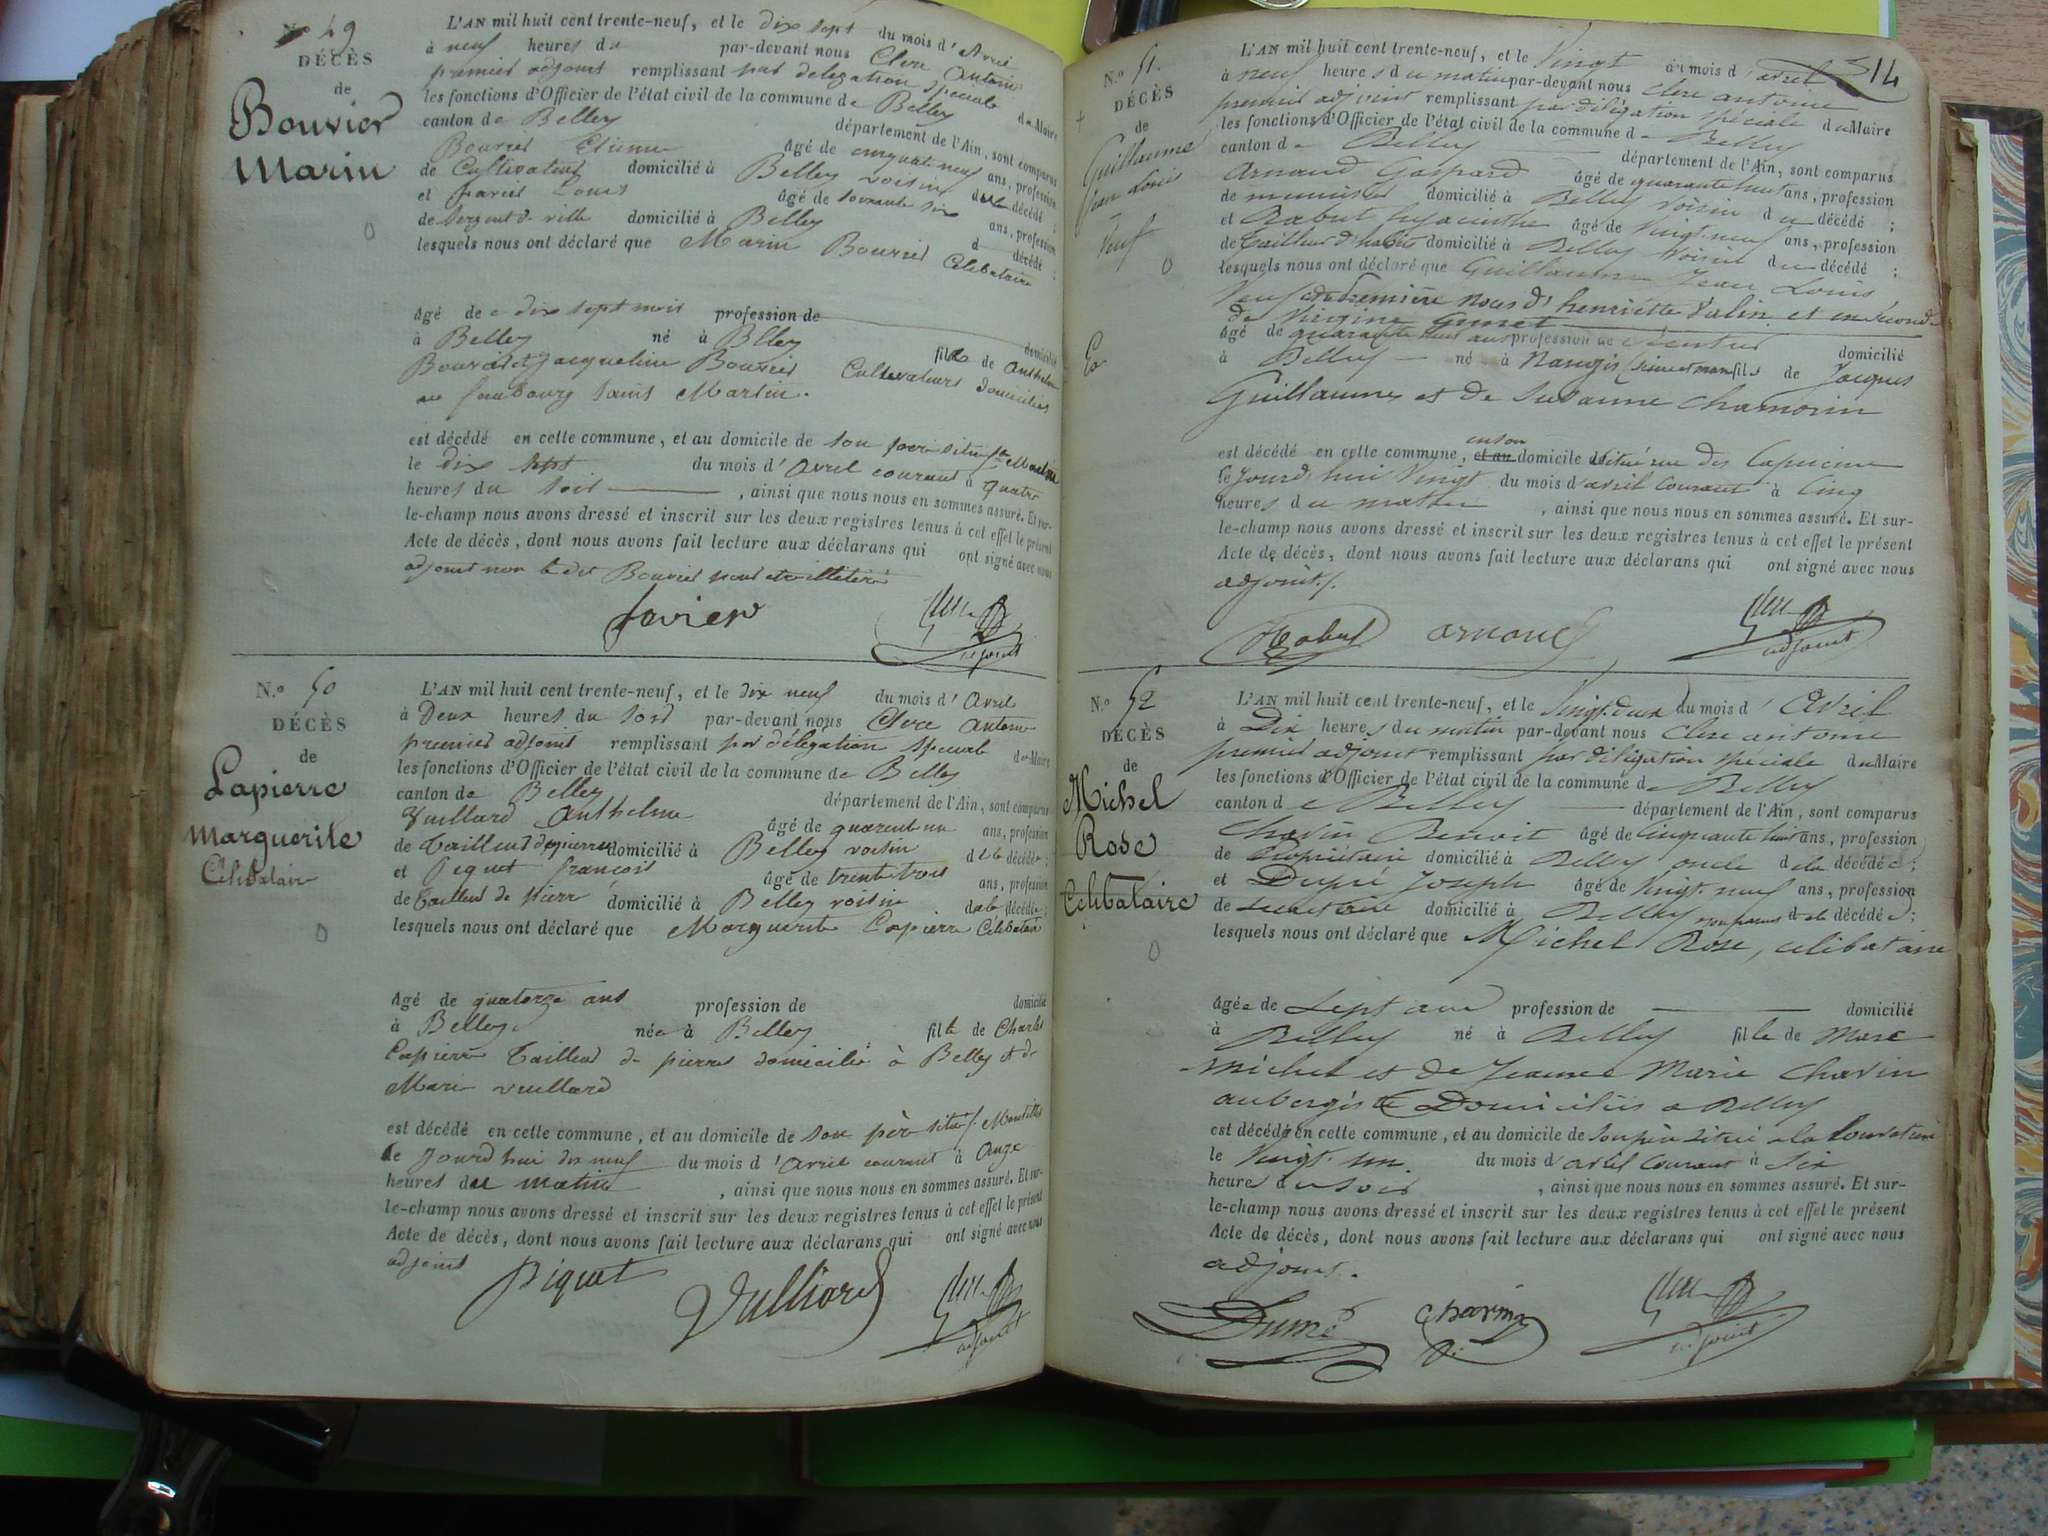 N.o 49
DÉCÈS
de
Bouvier
Marin
L'AN mil huit cent trente-neuf, et le dix sept du mois d'Avril
à neuf heures du par-devant nous Clerc Antoine
premier adjoint remplissant par délégation spéciale
les fonctions d'Officier de l'état civil de la commune de Belley du Maire
canton de Belley département de l'Ain, sont comparus
Bouvier Etienne âgé de cinquante neuf ans, profession
de Cultivateur domicilié à Belley voisin du décédé
et Favier Louis âgé de soixante six ans, profession
de sergent de ville domicilié à Belley d décédé ;
lesquels nous ont déclaré que Marin Bouvier Célibataire
âgé de dix sept mois profession de domicilié
à Belley né à Blley fils de Anthelme
Bouvier et Jacqueline Bouvier Cultivateurs domiciliés
au faubourg Saint Martin.
est décédé en cette commune, et au domicile de son père situé
le dix sept du mois d'Avril courant à quatre
heures du soir , ainsi que nous nous en sommes assuré. Et sur-
le-champ nous avons dressé et inscrit sur les deux registres tenus à cet effet le présent
Acte de décès, dont nous avons fait lecture aux déclarans qui ont signé avec nous
adjoint non le dit Bouvier pour être illitéré
Favier
adjoint
N.o 50
DÉCÈS
de
Lapierre
Marguerite
Célibataire
L'AN mil huit cent trente-neuf, et le dix neuf du mois d'Avril
à Deux heures du soir par-devant nous Clerc Antoine
premier adjoint remplissant par délégation spéciale du Maire
les fonctions d'Officier de l'état civil de la commune de Belley
canton de Belley département de l'Ain, sont comparus
Vuillard Anthelme âgé de quarante un ans, profession
de Tailleur de pierre domicilié à Belley voisin de la décédée ;
et Piquet françois âgé de trente trois ans, profession
de Tailleur de pierre domicilié à Belley voisin de la décédée ;
lesquels nous ont déclaré que Marguerite Lapierre Célibataire
âgé de quatorze ans profession de domicilié
à Belley née à Belley fille de Charles
Lapierre Tailleur de pierre domicilié à Belley et de
Marie Vuillard
est décédé en cette commune, et au domicile de son père situé
le Jourd'hui dix neuf du mois d'avril courant à Onze
heures du matin , ainsi que nous nous en sommes assuré. Et sur-
le-champ nous avons dressé et inscrit sur les deux registres tenus à cet effet le présent
Acte de décès, dont nous avons fait lecture aux déclarans qui ont signé avec nous
adjoint
Piquet Vulliard
adjoint
314
N.o 51.
DÉCÈS
de
Guillaume
Jean Louis
Veuf
L'AN mil huit cent trente-neuf, et le Vingt du mois d'avril
à neuf heures du matin par-devant nous Clerc antoine
premier adjoint remplissant par délégation spéciale du Maire
les fonctions d'Officier de l'état civil de la commune d Belley
canton de Belley département de l'Ain, sont comparus
Arnaud Gaspard âgé de quarante huit ans, profession
de menuisier domicilié à Belley voisin du décédé ;
et Rabut hyacinthe âgé de Vingt neuf ans, profession
de Tailleur d'habits domicilié à Belley voisin du décédé ;
lesquels nous ont déclaré que Guillaume Jean Louis,
Veuf de première noces d'henriette Valin et en second
de Virginie
âgé de quarante huit ans profession de domicilié
à Belley né à Nangis (seine et marne) fils de Jacques
Guillaume et de Susanne Chamorin
en son
est décédé en cette commune, et au domicile situé rue des Capucins
le Jourd'hui Vingt du mois d'avril courant à Cinq
heures du matin , ainsi que nous nous en sommes assuré. Et sur-
le-champ nous avons dressé et inscrit sur les deux registres tenus à cet effet le présent
Acte de décès, dont nous avons fait lecture aux déclarans qui ont signé avec nous
adjoint.
Rabut arnaud
adjoint
N.o 52
DÉCÈS
de
Michel
Rose
Célibataire
L'AN mil huit cent trente-neuf, et le Vingt-deux du mois d'Avril
à Dix heures du matin par-devant nous Clerc antoine
premier adjoint remplissant par délégation spéciale du Maire
les fonctions d'Officier de l'état civil de la commune de Belley
canton de Belley département de l'Ain, sont comparus
Chavin Benoit âgé de Cinquante huit ans, profession
de Propriétaire domicilié à Belley oncle de la décédée ;
et Dupré Joseph âgé de Vingt-neuf ans, profession
de secrétaire domicilié à Belley non parent de la décédée ;
lesquels nous ont déclaré que Michel Rose, célibataire
âgée de Sept ans profession de domicilié
à Belley né à Belley fille de Marc
Michel et de Jeanne Marie Chavin
aubergiste Domiciliés à Belley
est décédé en cette commune, et au domicile de son père situé
le Vingt-un. du mois d'avril courant à Six
heures du soir , ainsi que nous nous en sommes assuré. Et sur-
le-champ nous avons dressé et inscrit sur les deux registres tenus à cet effet le présent
Acte de décès, dont nous avons fait lecture aux déclarans qui ont signé avec nous
adjoint.
Chavin
adjoint